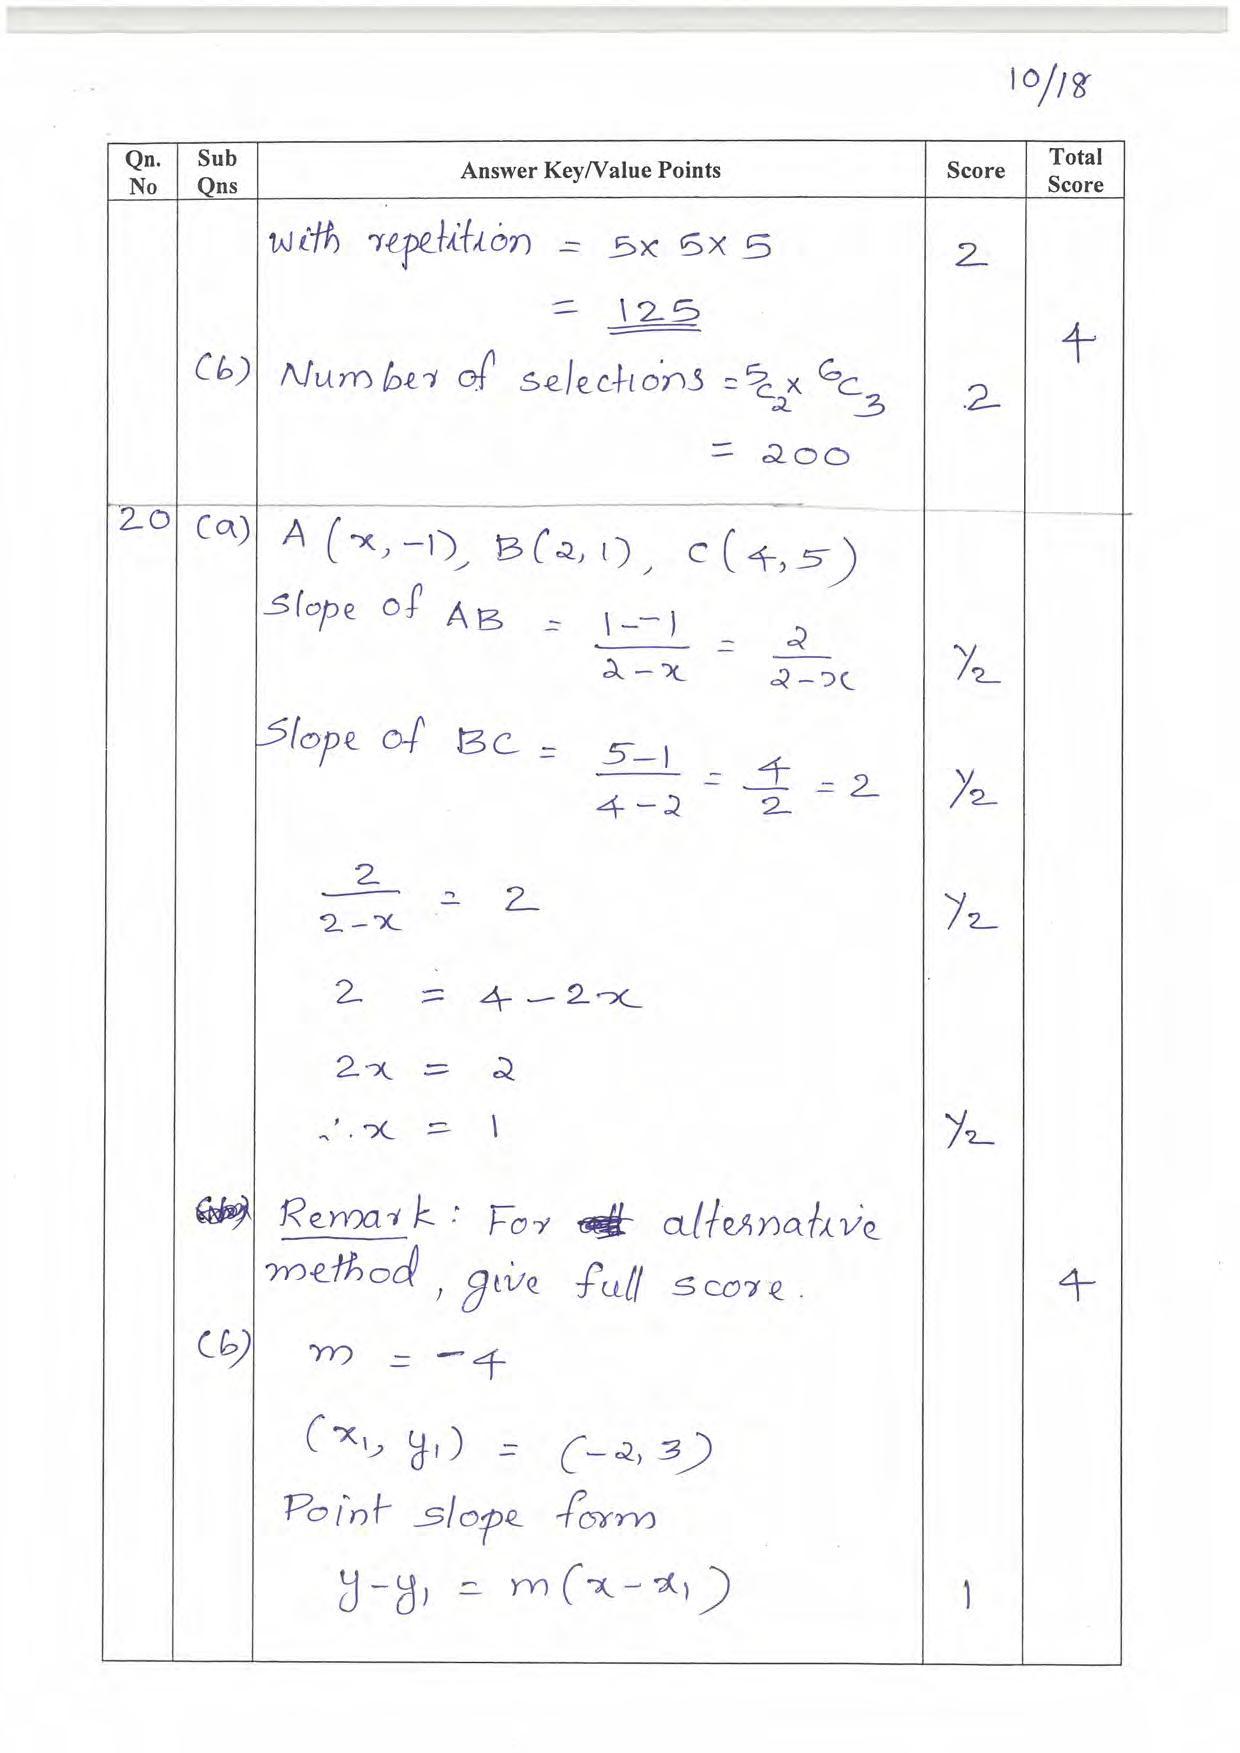 10/18
Qn. No Sub Qns Answer Key/Value Points Score Total Score
with repetition = 5x 5x 5 2
= 125
4
(b) Number of selections = 5C2 x 6C3 2
= 200
20 (a) A (x, -1), B(2, 1), C(4, 5)
Slope of AB = 1--1/2-x = 2/2-x 1/2
Slope of BC = 5-1/4-2 = 4/2 = 2 1/2
2/2-x = 2 1/2
2 = 4-2x
2x = 2
∴ x = 1 1/2
Remark: For alternative
method, give full score. 4
(b) m = -4
(x1, y1) = (-2, 3)
Point slope form
y-y1 = m(x-x1) 1